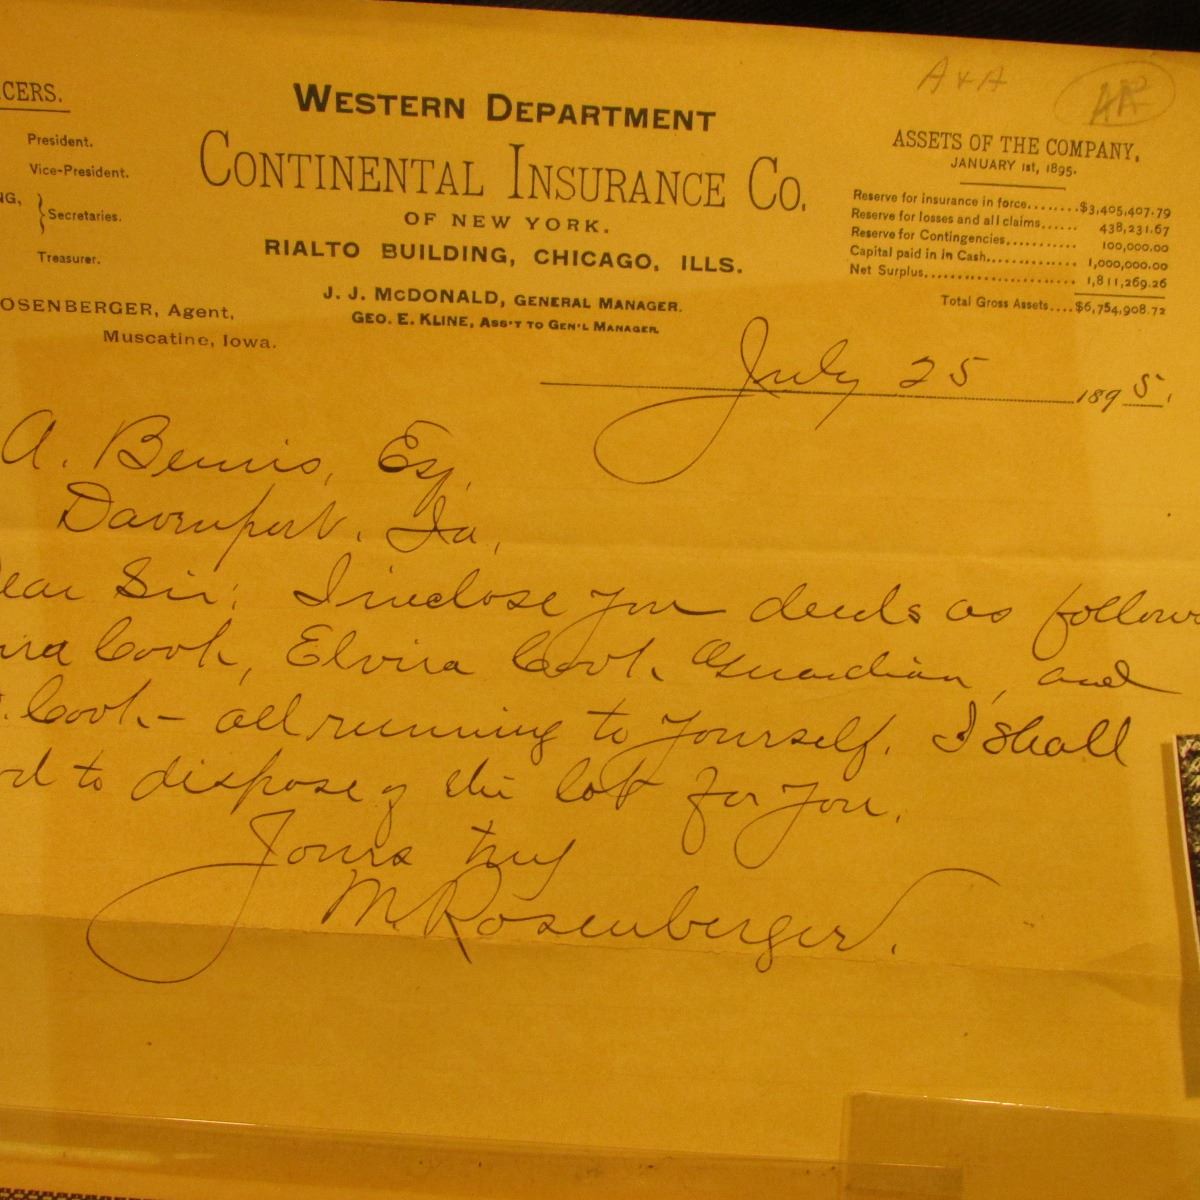 A & A AR
CERS.
President.
Vice-President.
NG,
Secretaries.
Treasurer.
OSENBERGER, Agent,
Muscatine, Iowa.
WESTERN DEPARTMENT
CONTINENTAL INSURANCE CO.
OF NEW YORK.
RIALTO BUILDING, CHICAGO, ILLS.
J. J. McDONALD, GENERAL MANAGER.
GEO. E. KLINE, ASS'T TO GEN'L MANAGER.
ASSETS OF THE COMPANY,
JANUARY 1st, 1895.
Reserve for insurance in force........$3,405,407.79
Reserve for losses and all claims...... 438,231.67
Reserve for Contingencies........... 100,000.00
Capital paid in in Cash.............. 1,000,000.00
Net Surplus........................ 1,811,269.26
Total Gross Assets....$6,754,908.72
July 25 1895.
A. Bemis, Esq,
Davenport, Ia,
ear Sir: I inclose you deeds as follow
ira Cook, Elvira Cook Guardian, and
. Cook - all running to yourself. I shall
d to dispose of the lot for you.
Yours truly
M. Rosenberger.